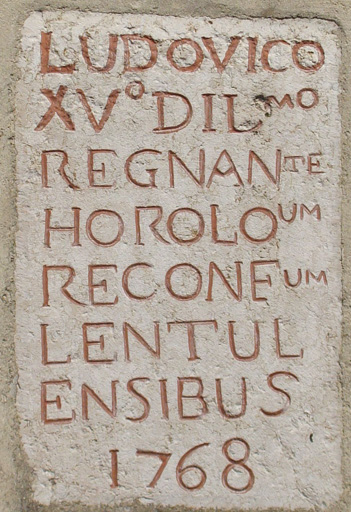 LUDOVICO
XVº DILᴹᴼ
REGNANᵀᴱ
HOROLOᵁᴹ
RECONEᵁᴹ
LENTUL
ENSIBUS
1768